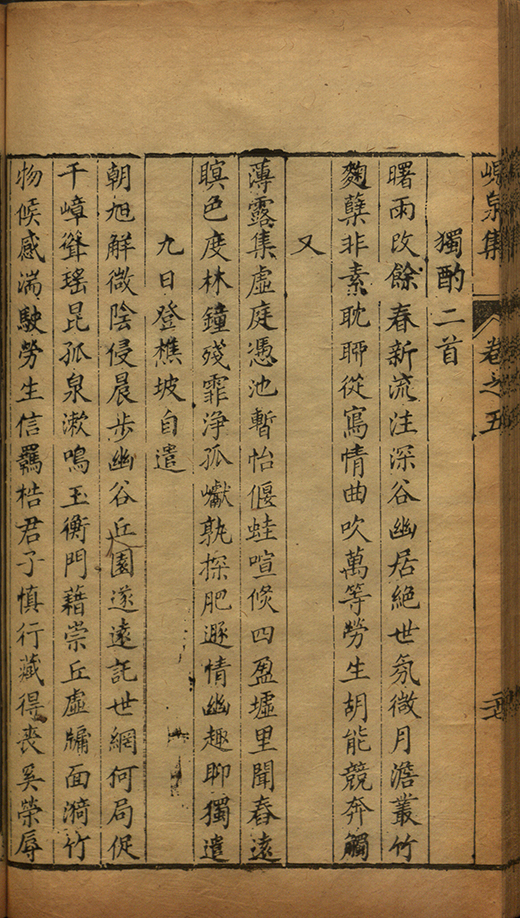 峴泉集 卷之五
獨酌二首
曙雨改餘春新流注深谷幽居絕世氛微月澹叢竹
麴糵非素耽聊從寫情曲吹萬等勞生胡能競奔觸
又
薄露集虛庭憑池暫怡偃蛙喧倐四盈墟里聞舂遠
瞑色度林鐘殘霏淨孤巘孰探肥遯情幽趣聊獨遣
九日登樵坡自遣
朝旭解微陰侵晨步幽谷丘園遂遠託世網何局促
千嶂聳瑤昆孤泉漱鳴玉衡門藉崇丘虛牖面漪竹
物候感湍駛勞生信羈梏君子慎行藏得喪奚榮辱